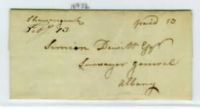 Feb 13
Paid 10
Simeon Dewitt Esqr
Surveyor General
Albany